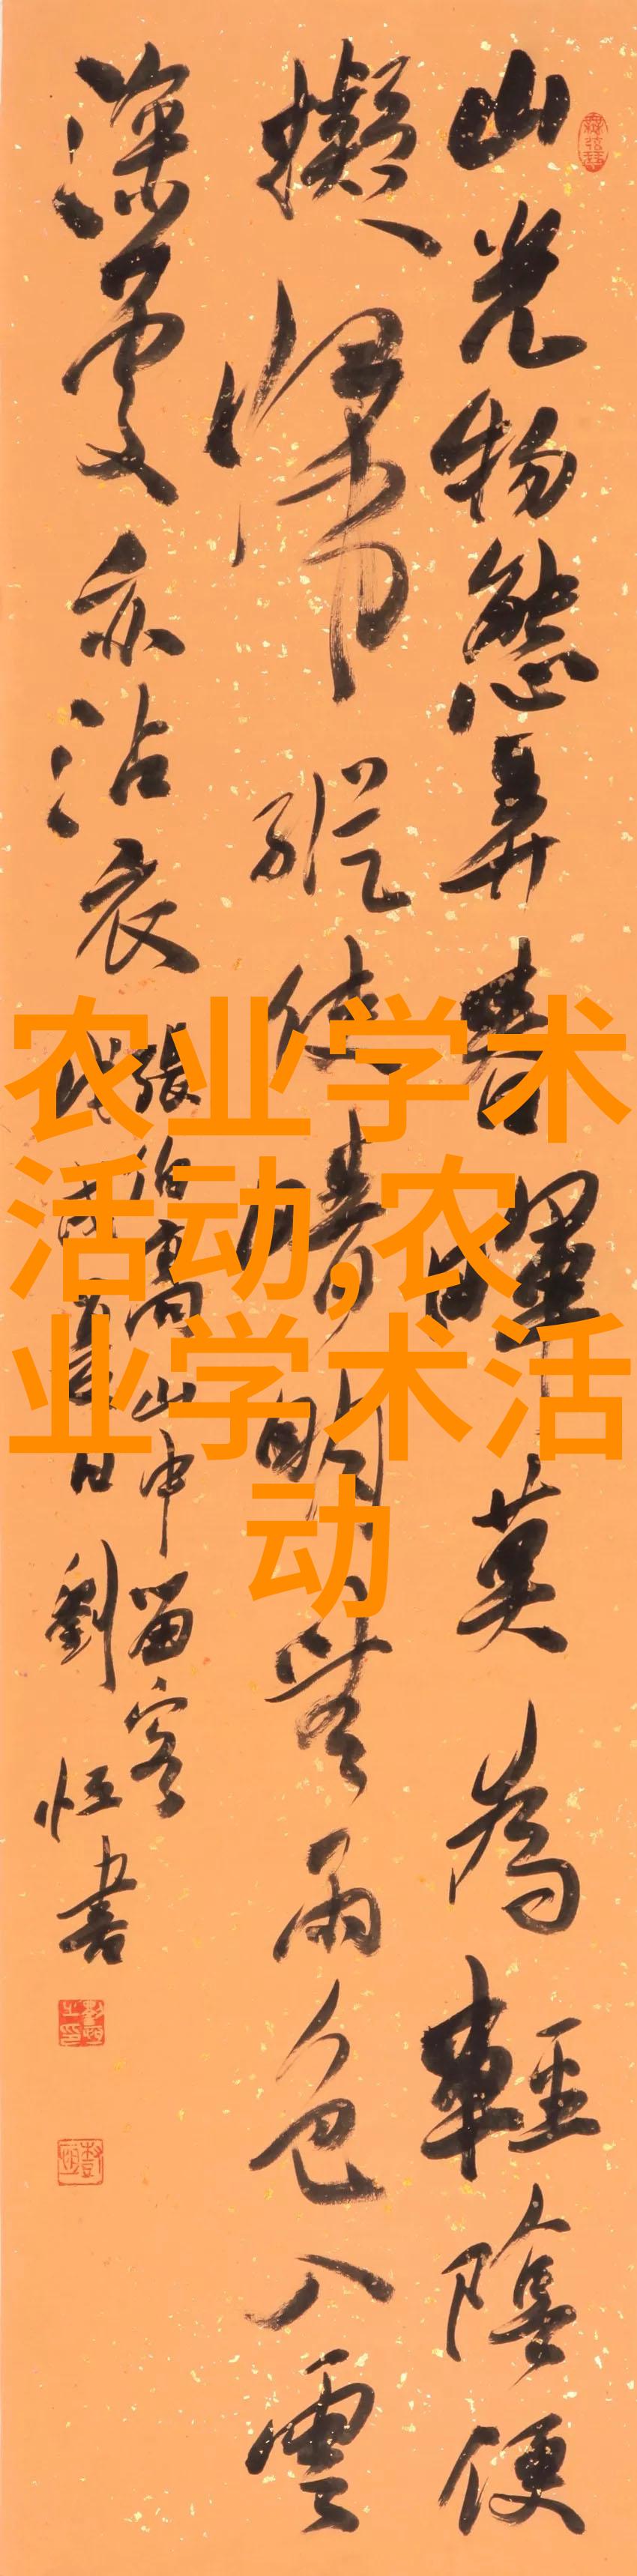 山光物態弄春暉莫為輕陰便
擬歸縱使晴明無雨色入雲
深處亦沾衣
張伯高山中留客
日劉恒書
农业学术
活动,农
业学术活
动